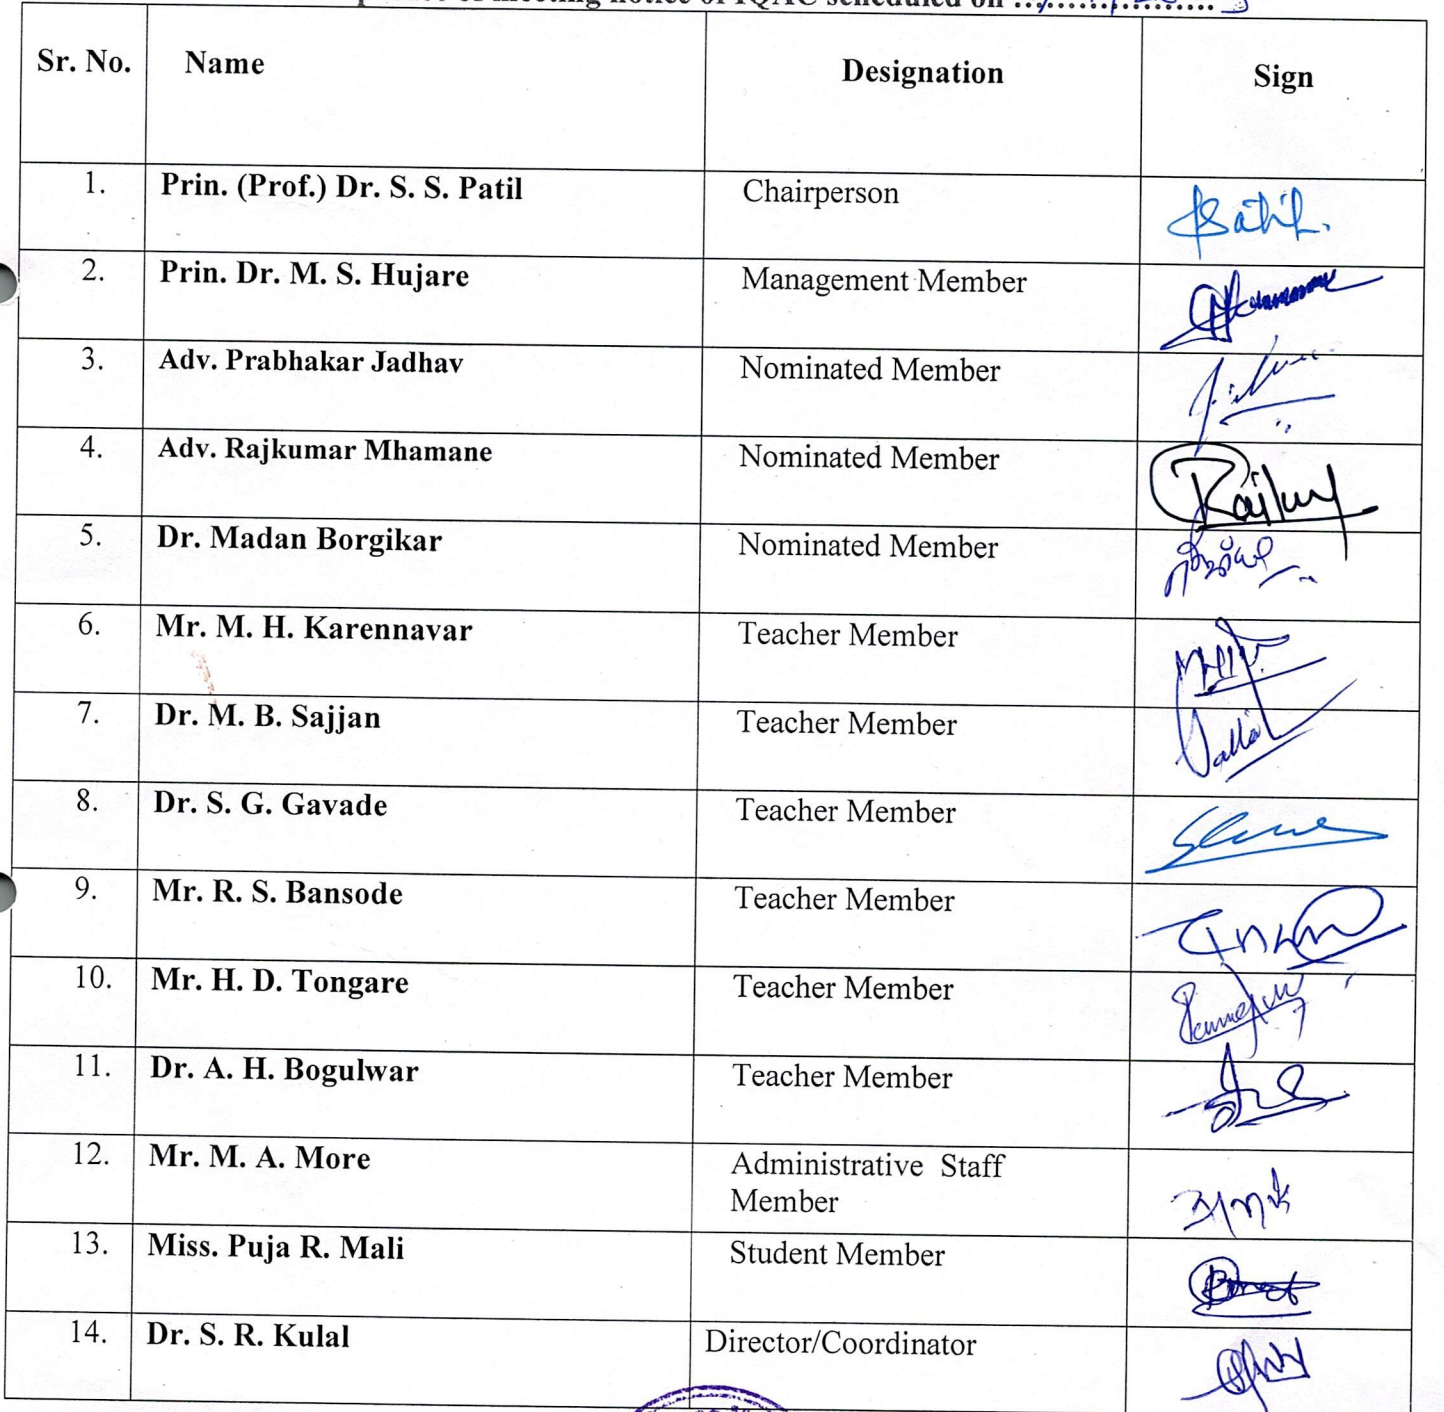 meeting notice of IQAC scheduled on
Sr. No. Name Designation Sign
1. Prin. (Prof.) Dr. S. S. Patil Chairperson
2. Prin. Dr. M. S. Hujare Management Member
3. Adv. Prabhakar Jadhav Nominated Member
4. Adv. Rajkumar Mhamane Nominated Member
5. Dr. Madan Borgikar Nominated Member
6. Mr. M. H. Karennavar Teacher Member
7. Dr. M. B. Sajjan Teacher Member
8. Dr. S. G. Gavade Teacher Member
9. Mr. R. S. Bansode Teacher Member
10. Mr. H. D. Tongare Teacher Member
11. Dr. A. H. Bogulwar Teacher Member
12. Mr. M. A. More Administrative Staff
Member
13. Miss. Puja R. Mali Student Member
14. Dr. S. R. Kulal Director/Coordinator